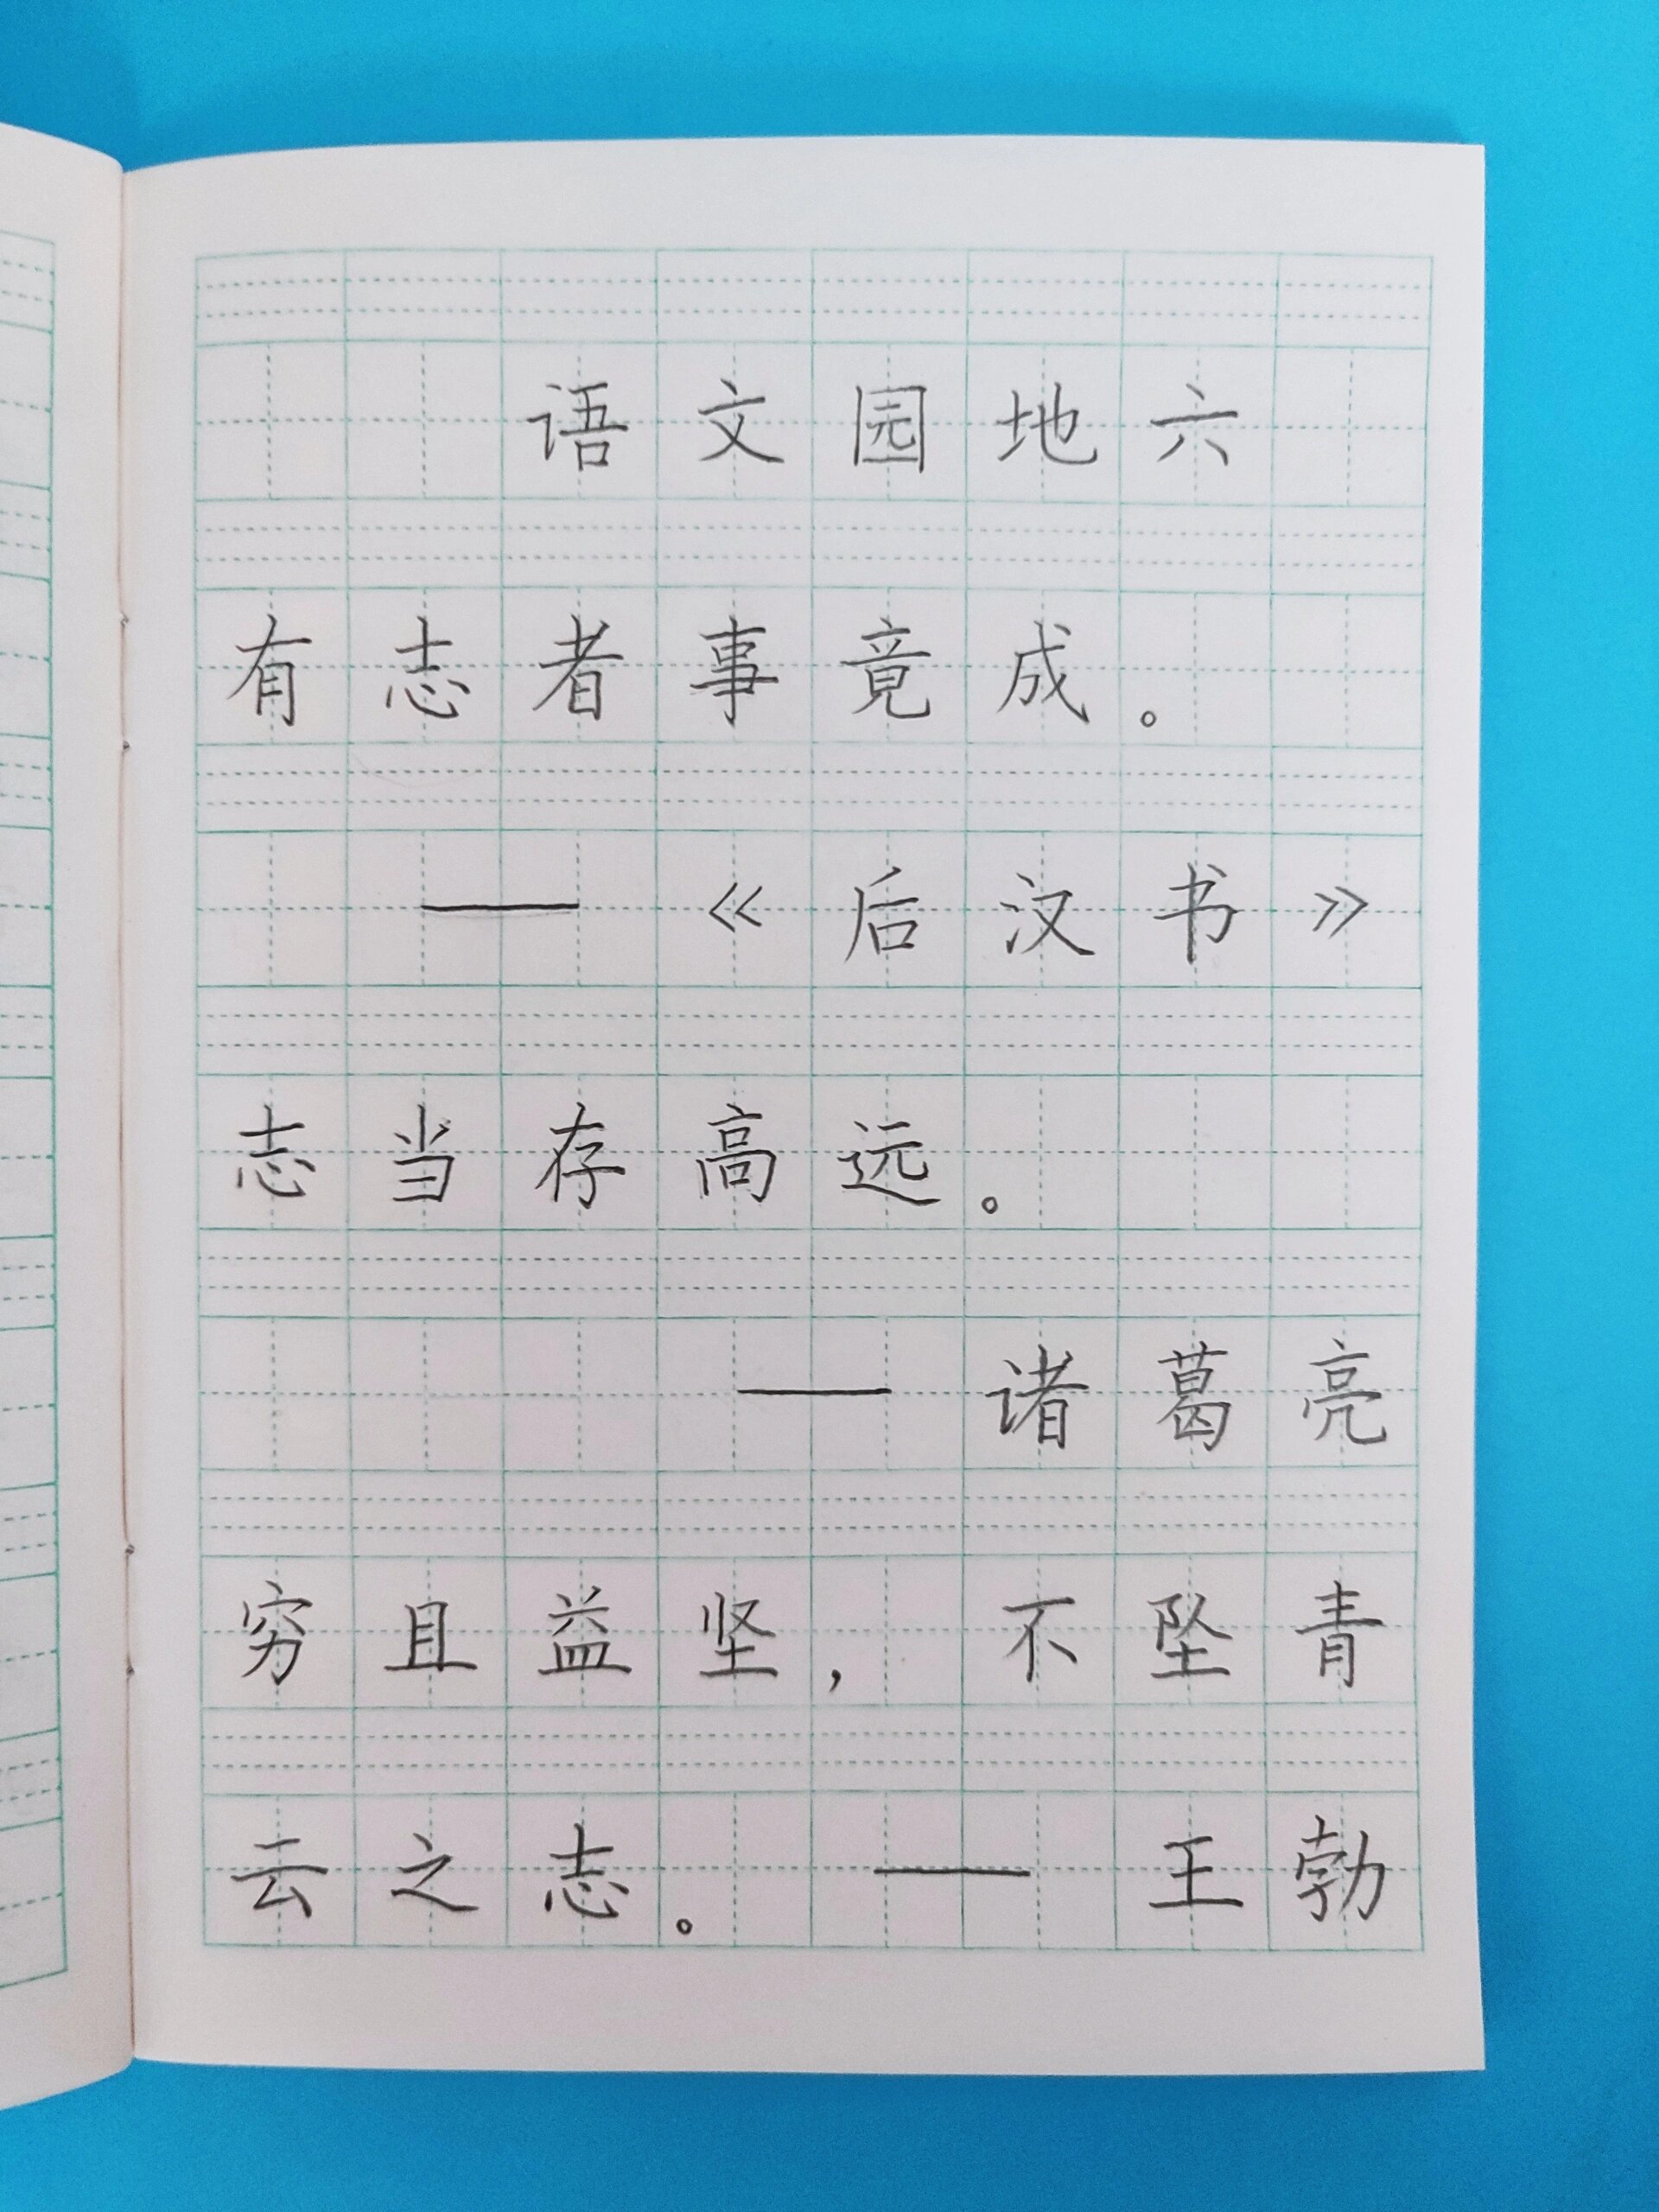 语文园地六
有志者事竟成。
——《后汉书》
志当存高远。
——诸葛亮
穷且益坚，不坠青
云之志。——王勃